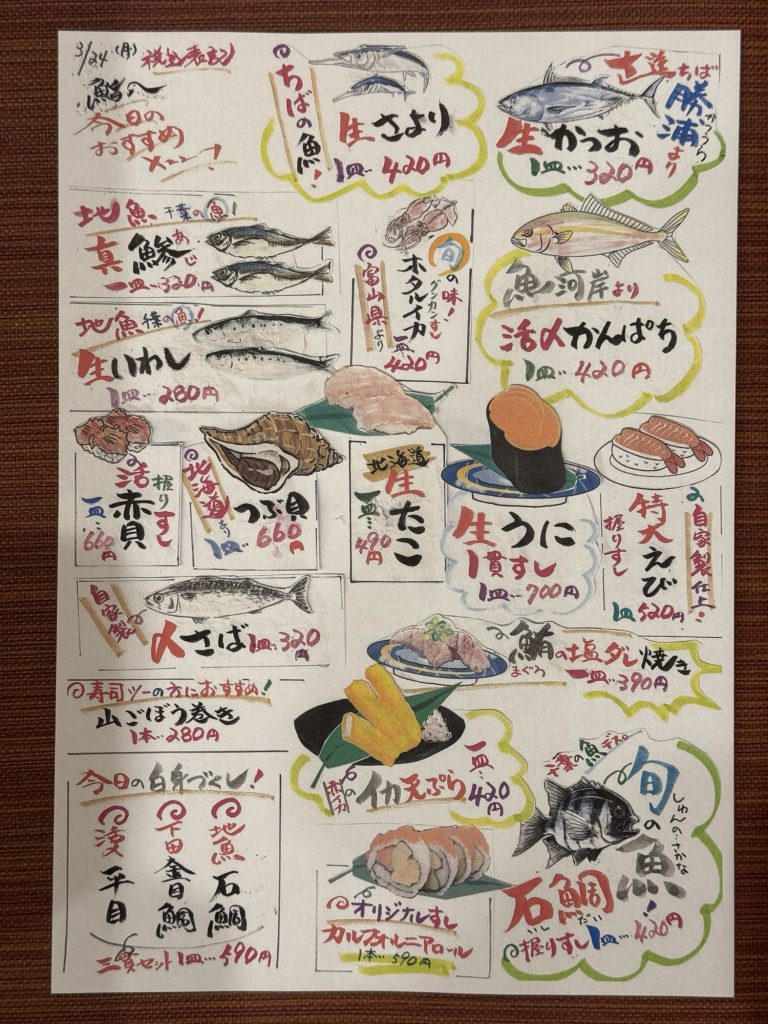 3/24(月) 税込表記
鮨へ
今日の
おすすめ
メニュー!
ちばの魚!
生さより
1皿…420円
直送ちば
勝浦より
かつうら
生かつお
1皿…320円
地魚 千葉の魚!
真鯵
あじ
一皿…320円
旬の味!
ホタルイカ
グンカンすし
富山県より
一皿…420円
魚河岸より
活〆かんぱち
1皿…420円
地魚
生いわし
1皿…280円
活赤貝
握りすし
一皿…660円
北海道より
つぶ貝
1皿…660円
北海道
生たこ
一皿…490円
生うに
1貫すし
1皿…700円
自家製仕上!
特大えび
握りすし
1皿520円
自家製
〆さば 1皿…320円
鮪の塩ダレ焼き
まぐろ
一皿…390円
寿司ツーの方におすすめ!
山ごぼう巻き
1本…280円
イカ天ぷら
一皿…420円
今日の白身づくし!
地魚 石鯛
下田 金目鯛
活〆 平目
三貫セット1皿…590円
オリジナルすし
カルフォルニアロール
1本…590円
千葉の魚デス。
旬の魚!
しゅんの…さかな
石鯛
いしだい
握りすし1皿…420円